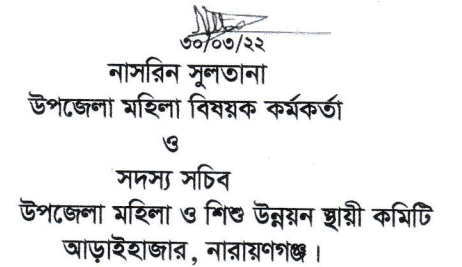 ৩০/০৩/২২
নাসরিন সুলতানা
উপজেলা মহিলা বিষয়ক কর্মকর্তা
ও
সদস্য সচিব
উপজেলা মহিলা ও শিশু উন্নয়ন স্থায়ী কমিটি
আড়াইহাজার, নারায়ণগঞ্জ।